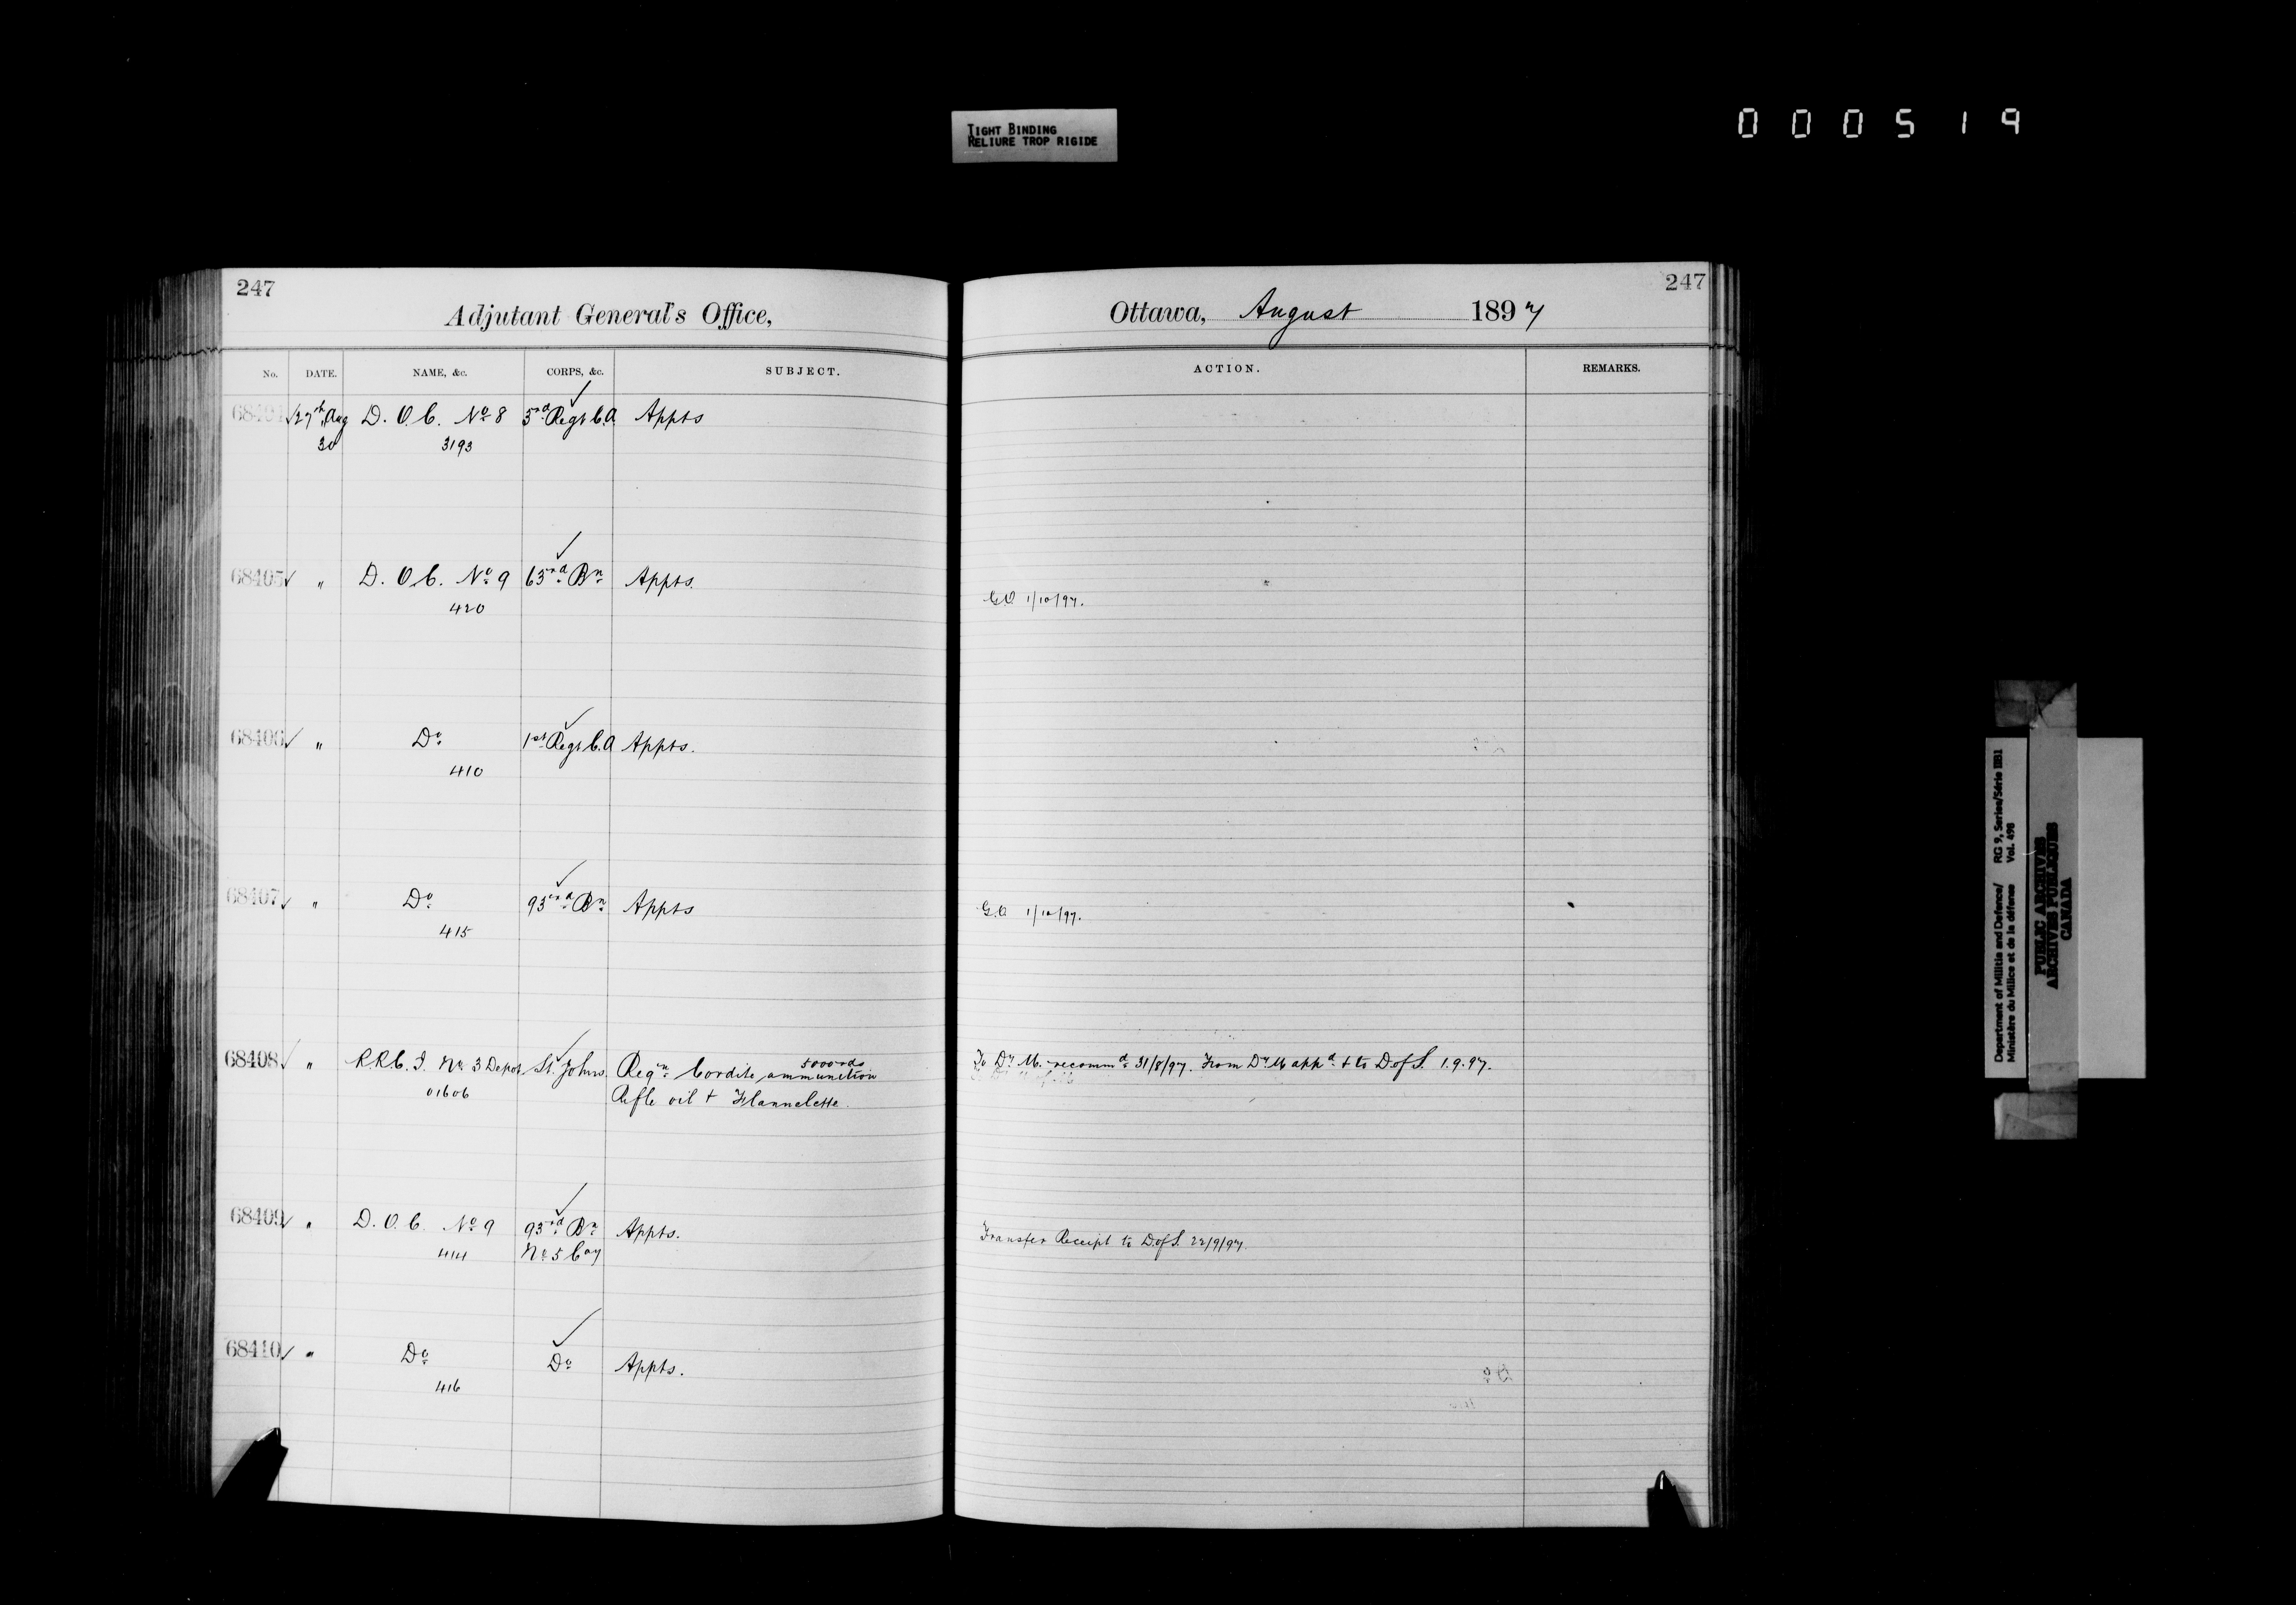 TIGHT BINDING
RELIURE TROP RIGIDE
000519
247
Adjutant General's Office,
No. DATE. NAME, &c. CORPS, &c. SUBJECT.
68404 27th Aug D.O.C. No 8 3rd Regt C.A. Appts
30 3193
68405 " D.O.C. No 9 63rd Bn Appts.
420
68406 " Do 1st Regt C.A Appts.
410
68407 " Do 93rd Bn Appts
415
68408 " R.R.C.I. No 3 Depot St. Johns. Reqn Cordite 5000 rds ammunition
01606 Rifle oil + Flannelette.
68409 " D.O.C. No 9 93rd Bn Appts.
414 No 5 Coy
68410 " Do Do Appts.
416
247
Ottawa, August 1897
ACTION. REMARKS.
G.O 1/10/97.
G.O 1/10/97.
To Dy M. recommd 31/8/97. From Dy M appd + to D of S. 1.9.97.
Transfer Receipt to D of S. 22/9/97.
Department of Militia and Defence/ RG 9, Series/Série IIB1
Ministère du Milice et de la défense Vol. 498
PUBLIC ARCHIVES
ARCHIVES PUBLIQUES
CANADA